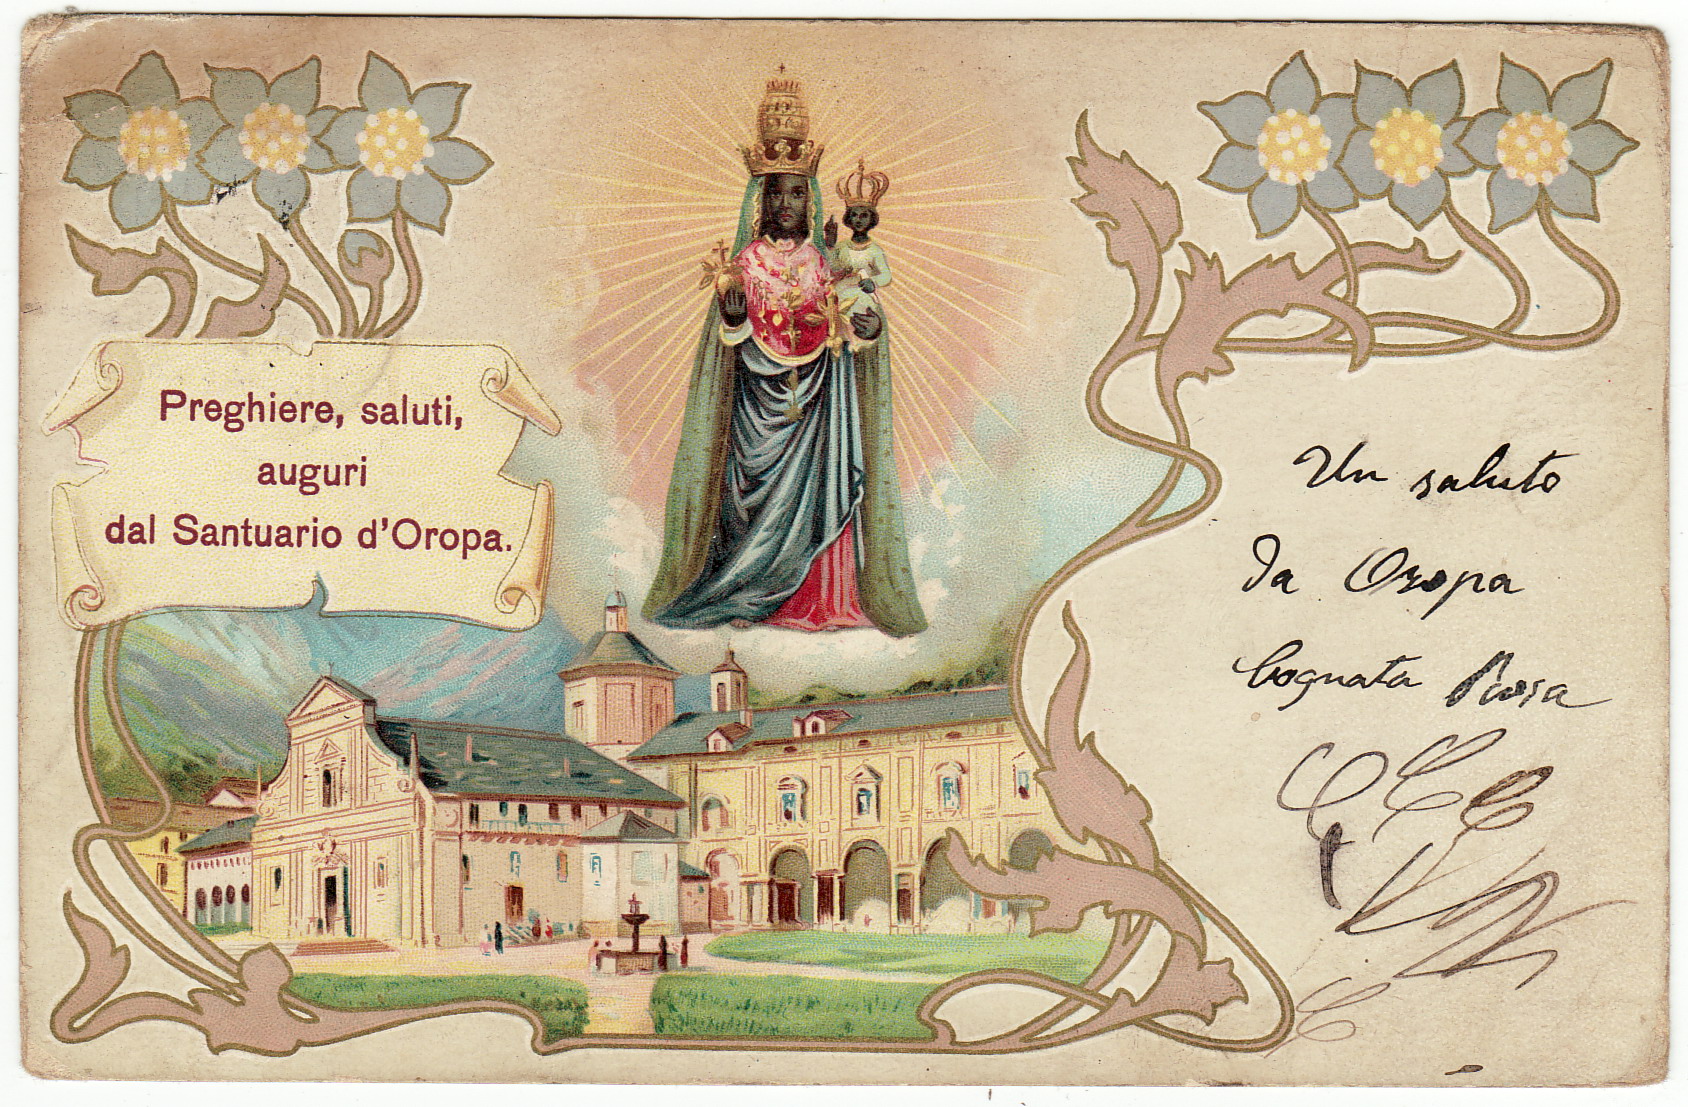 Preghiere, saluti,
auguri
dal Santuario d'Oropa.
Un saluto
da Oropa
Cognata Rosa